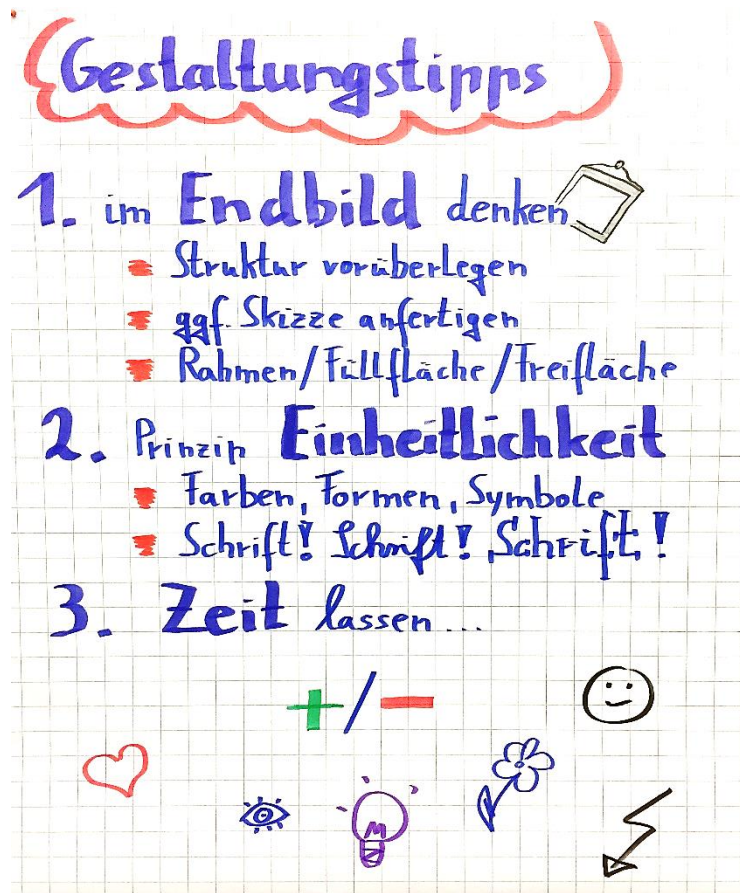 Gestaltungstipps
1. im Endbild denken
Struktur vorüberlegen
ggf. Skizze anfertigen
Rahmen/Füllfläche/Freifläche
2. Prinzip Einheitlichkeit
Farben, Formen, Symbole
Schrift! Schrift! Schrift!
3. Zeit lassen...
+/-